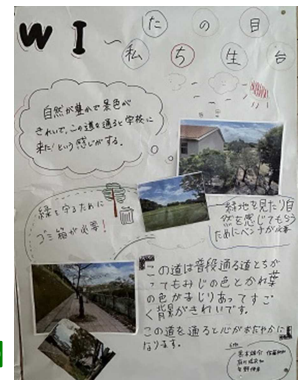 WI~たの目
私ち生台
自然が豊かで景色が
きれいで、この道を通ると学校に
来た!という感じがする。
緑を守るために
ゴミ箱が必要!
緑地を見たり自
然を感じてもらう
ためにベンチが必要
この道は普段通る道とちが
ってもみじの色とかれ葉
の色がまじりあってすご
く背景がきれいです。
この道を通ると心がおだやかに
なります。